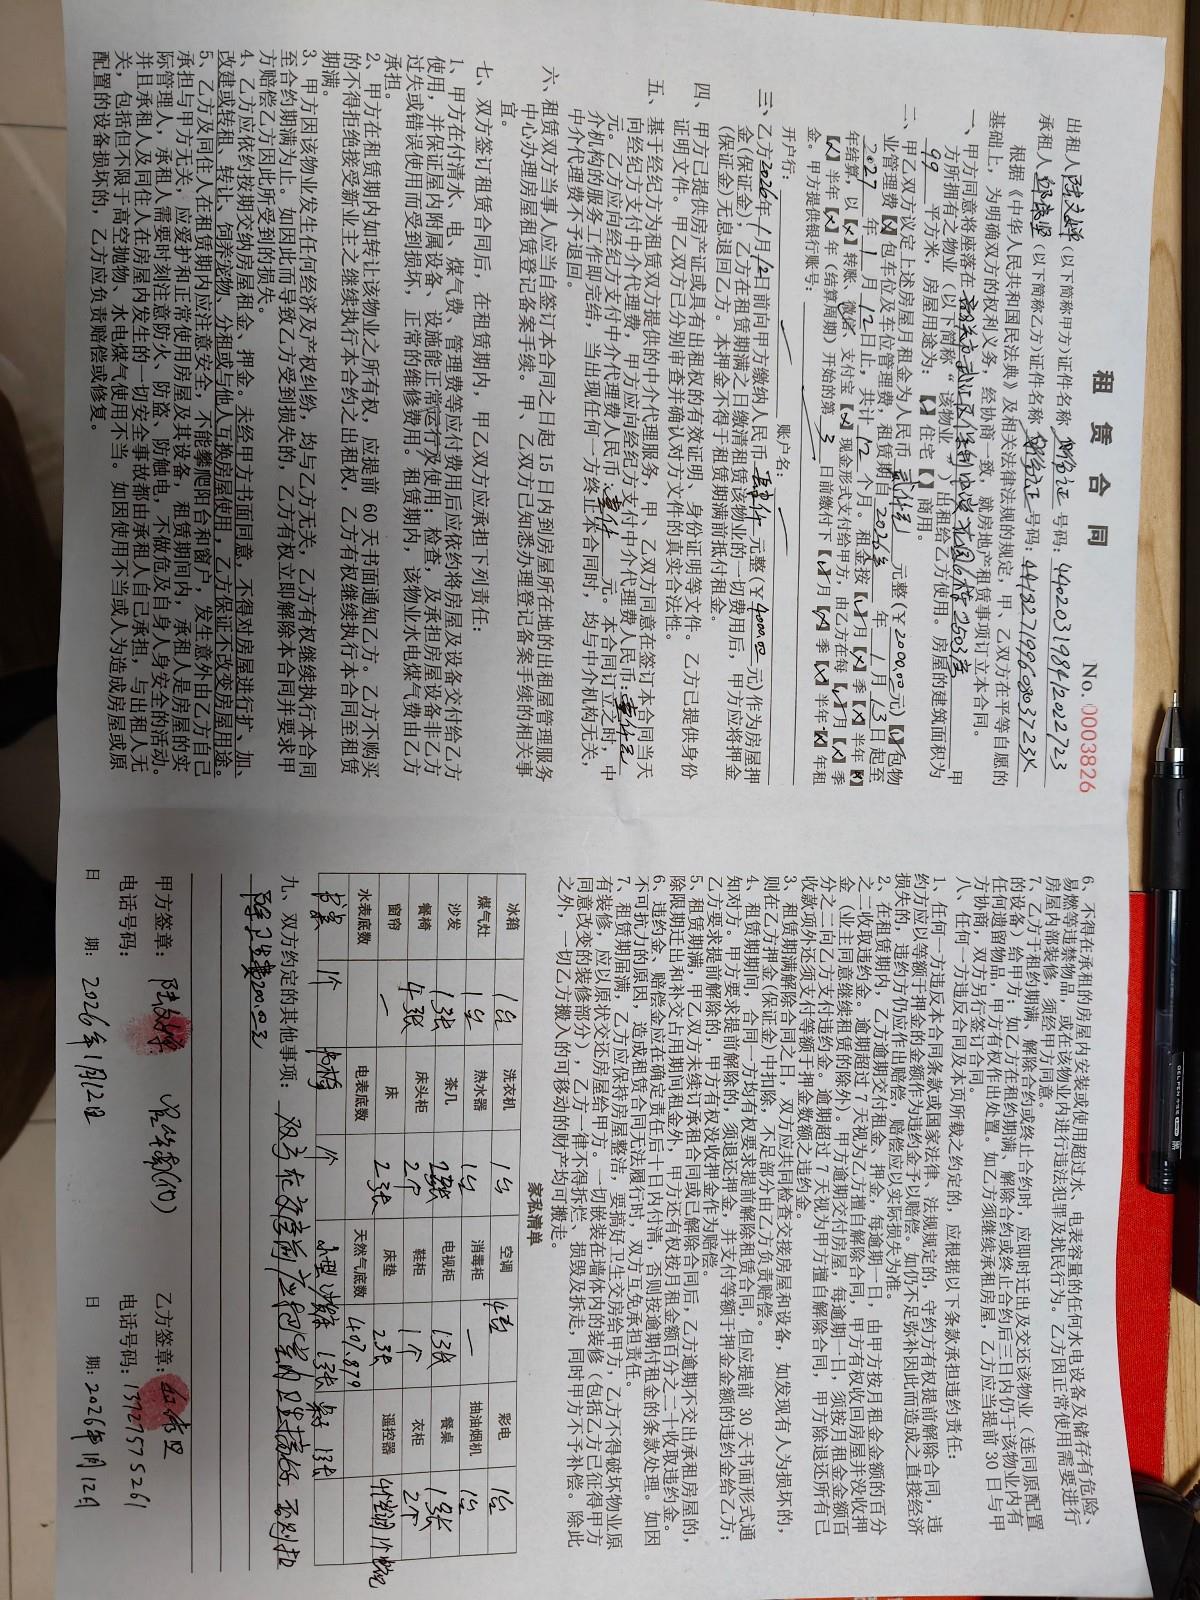 租 赁 合 同
No. 0003826
出租人 （以下简称甲方）证件名称 身份证 号码：440203198412022723
承租人 （以下简称乙方）证件名称 身份证 号码：44122719960803723X
根据《中华人民共和国民法典》及相关法律法规的规定，甲、乙双方在平等自愿的
基础上，为明确双方的权利义务，经协商一致，就房地产租赁事项订立本合同。
一、甲方同意将座落在 韶关市武江区 2503房 甲
方所拥有之物业（以下简称“该物业”）出租给乙方使用。房屋的建筑面积为
99 平方米，房屋用途为：【 】住宅【 】商用。
二、甲乙双方议定上述房屋月租金为人民币 贰仟 元整（￥2000.00元）【 】包物
业管理费【×】包车位及车位管理费，租赁期自 2026 年 1 月 13 日起至
2027 年 1 月 12 日止，共计 12 个月。租金按【√】月【×】季【×】半年【×】
年结算，以【×】转账、微信、支付宝【×】现金形式支付给甲方，由乙方在每【√】月【×】季
【×】半年【×】年（结算周期）开始的第 3 日前缴付下【√】月【×】季【×】半年【×】年租
金。甲方提供银行账号：
开户行： 账户名：
三、乙方2026年1月12日前向甲方缴纳人民币 肆仟 元整（￥4000.00元）作为房屋押
金（保证金），乙方在租赁期满之日缴清租赁该物业的一切费用后，甲方应将押金
（保证金）无息退回乙方。本押金不得于租赁期满前抵付租金。
四、甲方已提供房产证或具有出租权的有效证明、身份证明等文件。乙方已提供身份
证明文件。甲乙双方已分别审查并确认对方文件的真实合法性。
五、基于经纪方为租赁双方提供的中介代理服务，甲、乙双方同意在签订本合同当天
向经纪方支付中介代理费，甲方应向经纪方支付中介代理费人民币：壹仟元
元。乙方应向经纪方支付中介代理费人民币：壹仟 元。本合同订立之时，中
介机构的服务工作即完结，当出现任何一方终止本合同时，均与中介机构无关，
中介代理费不予退回。
六、租赁双方当事人应当自签订本合同之日起 15 日内到房屋所在地的出租屋管理服务
中心办理房屋租赁登记备案手续。甲、乙双方已知悉办理登记备案手续的相关事
宜。
七、双方签订租赁合同后，在租赁期内，甲乙双方应承担下列责任：
1、甲方在付清水、电、煤气费、管理费等应付费用后应依约将房屋及设备交付给乙方
使用，并保证屋内附属设备、设施能正常运行及使用；检查，及承担房屋设备非乙方
过失或错误使用而受到损坏，正常的维修费用。租赁期内，该物业水电煤气费由乙方
承担。
2、甲方在租赁期内如转让该物业之所有权，应提前 60 天书面通知乙方。乙方不购买
的不得拒绝接受新业主之继续执行本合约之出租权，乙方有权继续执行本合同至租赁
期满。
3、甲方因该物业发生任何经济及产权纠纷，均与乙方无关，乙方有权继续执行本合同
至合约期满为止。如因此而导致乙方受到损失的，乙方有权立即解除本合同并要求甲
方赔偿乙方因此所受到的损失。
4、乙方应依约按期交纳房屋租金、押金。未经甲方书面同意，不得对房屋进行扩、加、
改建或转租、转让、饲养宠物、分租或与他人互换房屋使用，乙方保证不改变房屋用途。
5、乙方及同住人在租赁期内应注意安全，不能攀爬阳台和窗户，发生意外由乙方自己
承担与甲方无关，应爱护和正常使用房屋及其设备，租赁期间内，承租人是房屋的实
际管理人，承租人需要时刻注意防火、防盗、防触电，不做危及自身人身安全的活动。
并且承租人及同住人在房屋内发生的一切安全事故都由承租人自己承担，与出租人无
关，包括但不限于高空抛物、水电煤气使用不当。如因使用不当或人为造成房屋或原
配置的设备损坏的，乙方应负责赔偿或修复。
6、不得在承租的房屋内安装或使用超过水、电表容量的任何水电设备及储存有危险、
易燃等违禁物品，或在该物业内进行违法犯罪及扰民行为。乙方因正常使用需要进行
房屋内部装修，须经甲方同意。
7、乙方于租约期满、解除合约或终止合约时，应即时迁出及交还该物业（连同原配置
的设备）给甲方；如乙方在租约期满、解除合约或终止合约后三日内仍于该物业内有
任何遗留物品，甲方有权作出处置。如乙方须继续承租房屋，乙方应当提前 30 日与甲
方协商，双方另行签订合同。
八、任何一方违反合同及本页所载之约定的，应根据以下条款承担违约责任：
1、任何一方违反本合同条款或国家法律、法规规定的，守约方有权提前解除合同，违
约方应以等额于押金的金额作为违约金予以赔偿。如仍不足弥补因此而造成之直接经济
损失的，违约方仍应作出赔偿，赔偿应以实际损失为准。
2、在租赁期内，乙方逾期交付租金、押金，每逾期一日，由甲方按月租金金额的百分
之二收取违约金。逾期超过 7 天视为乙方擅自解除合同，甲方有权收回房屋并没收押
金（业主同意继续租赁的除外）。甲方逾期交付房屋，每逾期一日，须按月租金金额百
分之二向乙方支付违约金。逾期超过 7 天视为甲方擅自解除合同，甲方除退还所有已
收款项外还须支付等额于押金数额之违约金。
3、租赁期满解除合同之日，双方应共同检查交接房屋和设备，如发现有人为损坏的，
则在乙方押金（保证金）中扣除，不足部分由乙方负责赔偿。
4、租赁期期间，合同一方均有权要求提前解除租赁合同，但应提前 30 天书面形式通
知对方。甲方要求提前解除的，须退还押金，并支付等额于押金金额的违约金给乙方；
乙方要求提前解除的，甲方有权没收押金作为赔偿。
5、租赁期满，甲乙双方未续订承租合同或已解除合同后，乙方逾期不交出承租房屋的，
除限期迁出和补交占用期间租金外，甲方还有权按月租金额百分之二十收取违约金。
6、违约金、赔偿金应在确定责任后十日内付清，否则按逾期付租金的条款处理。如因
不可抗力的原因，造成租赁合同无法履行时，双方互免承担责任。
7、租赁期届满，乙方应保持房屋整洁，要搞好卫生交房给甲方，乙方不得破坏物业原
有装修，应以原状交还房屋给甲方。一切嵌装在墙体内的装修（包括乙方已征得甲方
同意改变的装修部分），乙方一律不得拆烂、损毁及拆走，同时甲方不予补偿。除此
之外，一切乙方搬入的可移动的财产均可搬走。
家私清单
冰箱 1台 洗衣机 1台 空调 4台 彩电 1台
煤气灶 1台 热水器 1台 消毒柜 一 抽油烟机 1台
沙发 1张 茶几 电视柜 1张 餐桌 1张
餐椅 4张 床头柜 2个 鞋柜 1个 衣柜 2个
窗帘 一 床 2张 床垫 2张 遥控器
水表底数 电表底数 天然气底数 407.879
1个 书桌 1个 小型沙发 1张 1张
九、双方约定的其他事项： 双方在交房前应把室内卫生搞好，否则扣
除卫生费200.00元
甲方签章： (代) 乙方签章：
电话号码： 电话号码：13727575261
日 期：2026年1月12日 日 期：2026年1月12日